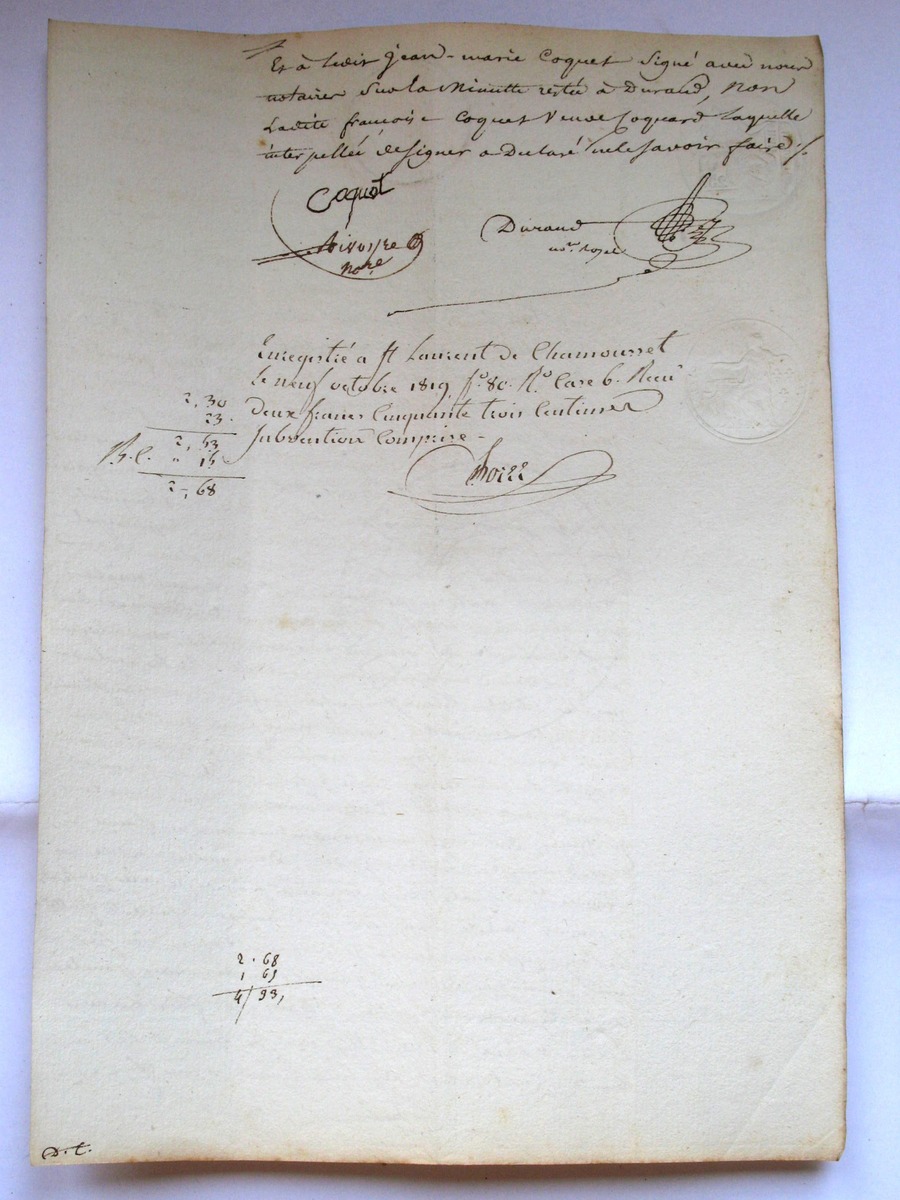 Et à ledit jean-marie Coquet signé avec nous
notaires sur la Minutte restée à Durand, non
Ladite françoise Coquet Veuve Coquard laquelle
interpellée de signer a Déclaré ne le savoir faire ./.
Coquet
Durand
nore royal
nore
Enregistré a st Laurent de Chamousset
Le neuf octobre 1819 fo. 80. Ro. Case 6. Recu
Deux francs Cinquante trois Centimes
Subvention Comprise -
2, 30
23.
2, 53
R.C. " 15
2, 68
2 . 68
1 65
4/ 33,
D.C.